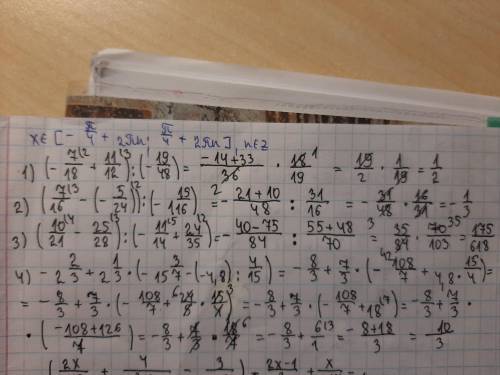 x∈ [-π/4 + 2πn; π/4 + 2πn], n∈Z
1) (-7/18 + 11/12) : (-19/48) = (-14+33)/36 · 18/19 = 19/2 · 1/19 = 1/2
2) (7/16 - (-5/24)) : (-1 15/16) = -(21+10)/48 : 31/16 = -31/48 · 16/31 = -1/3
3) (10/21 - 25/28) : (-11/14 + 24/35) = (40-75)/84 : (55+48)/70 = 35/84 · 70/103 = 175/618
4) -2 2/3 + 2 1/3 · (-15 3/7 - (-4,8) : 4/15) = -8/3 + 7/3 · (-108/7 + 4,8 · 15/4) =
= -8/3 + 7/3 · (-108/7 + 24/5 · 15/4) = -8/3 + 7/3 · (-108/7 + 18) = -8/3 + 7/3 ·
· (-108+126)/7 = -8/3 + 7/3 · 18/7 = -8/3 + 6/1 = (-8+18)/3 = 10/3
2x + 4 - 3 2x-1 + x